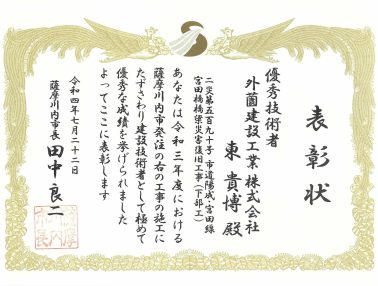 表彰状
優秀技術者
外薗建設工業株式会社
東 貴博 殿
二災第五百九十号 市道陽成・宮田線
宮田橋橋梁災害復旧工事(下部工)
あなたは令和三年度における
薩摩川内市発注の右の工事の施工に
たずさわり建設技術者として極めて
優秀な成績を挙げられました
よってここに表彰します
令和四年七月二十二日
薩摩川内市長 田中良二